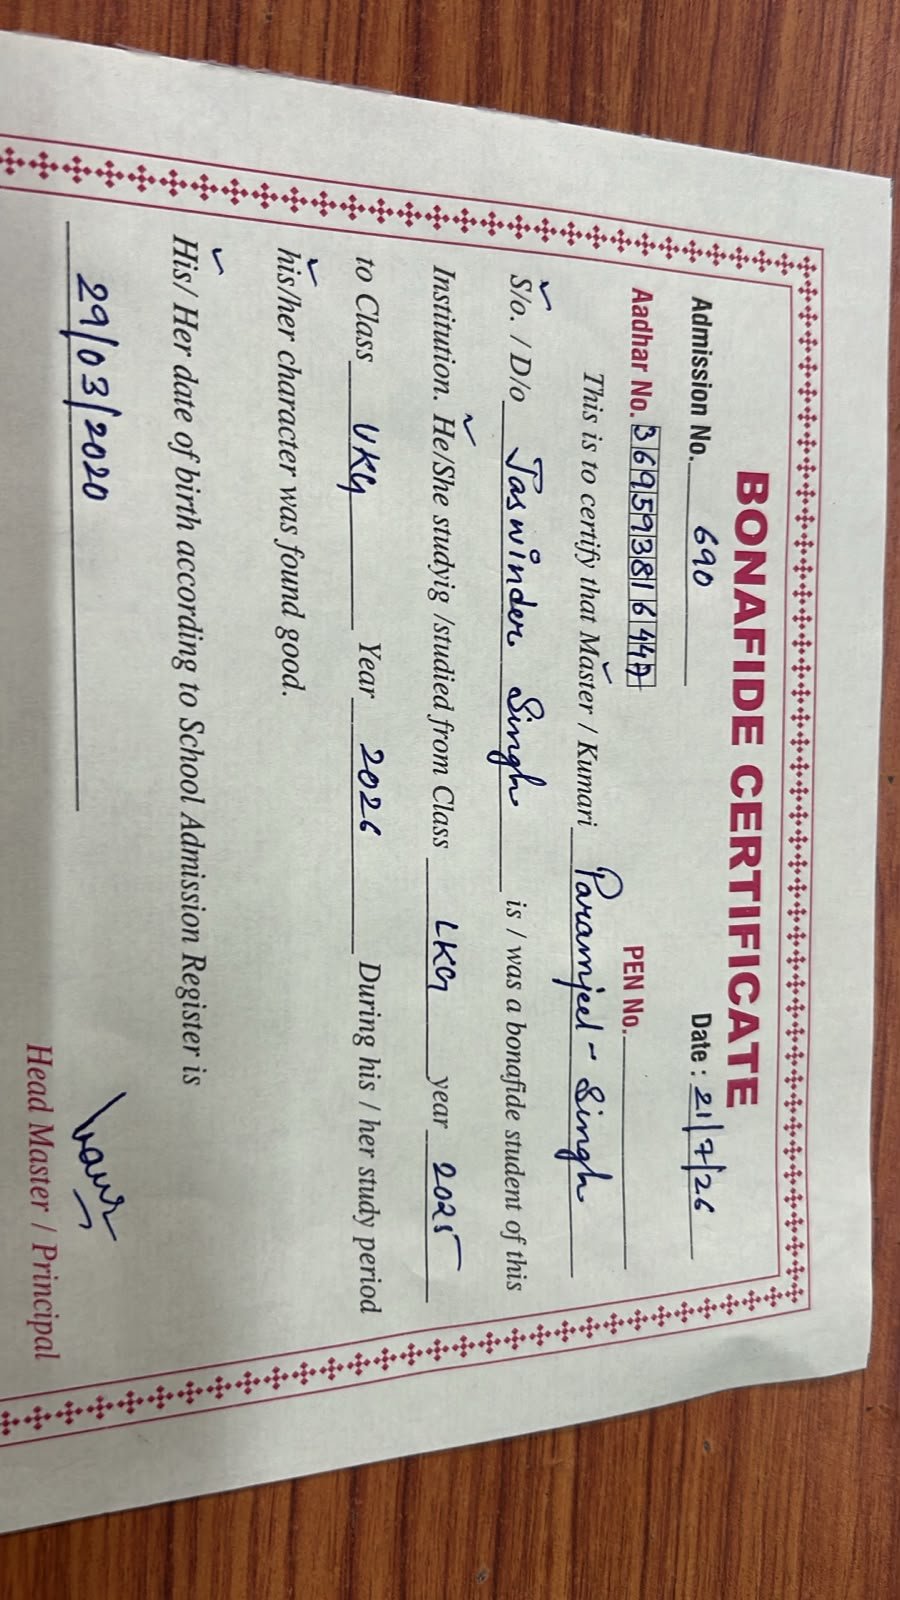 BONAFIDE CERTIFICATE
Admission No. 690 Date : 21/7/26
Aadhar No. 36959381644 PEN No.
This is to certify that Master / Kumari Paramjeet - Singh
S/o. / D/o Jaswinder Singh is / was a bonafide student of this
Institution. He/She studyig /studied from Class LKG year 2025
to Class UKG Year 2026 During his / her study period
his/her character was found good.
His/ Her date of birth according to School Admission Register is
29/03/2020
Head Master / Principal